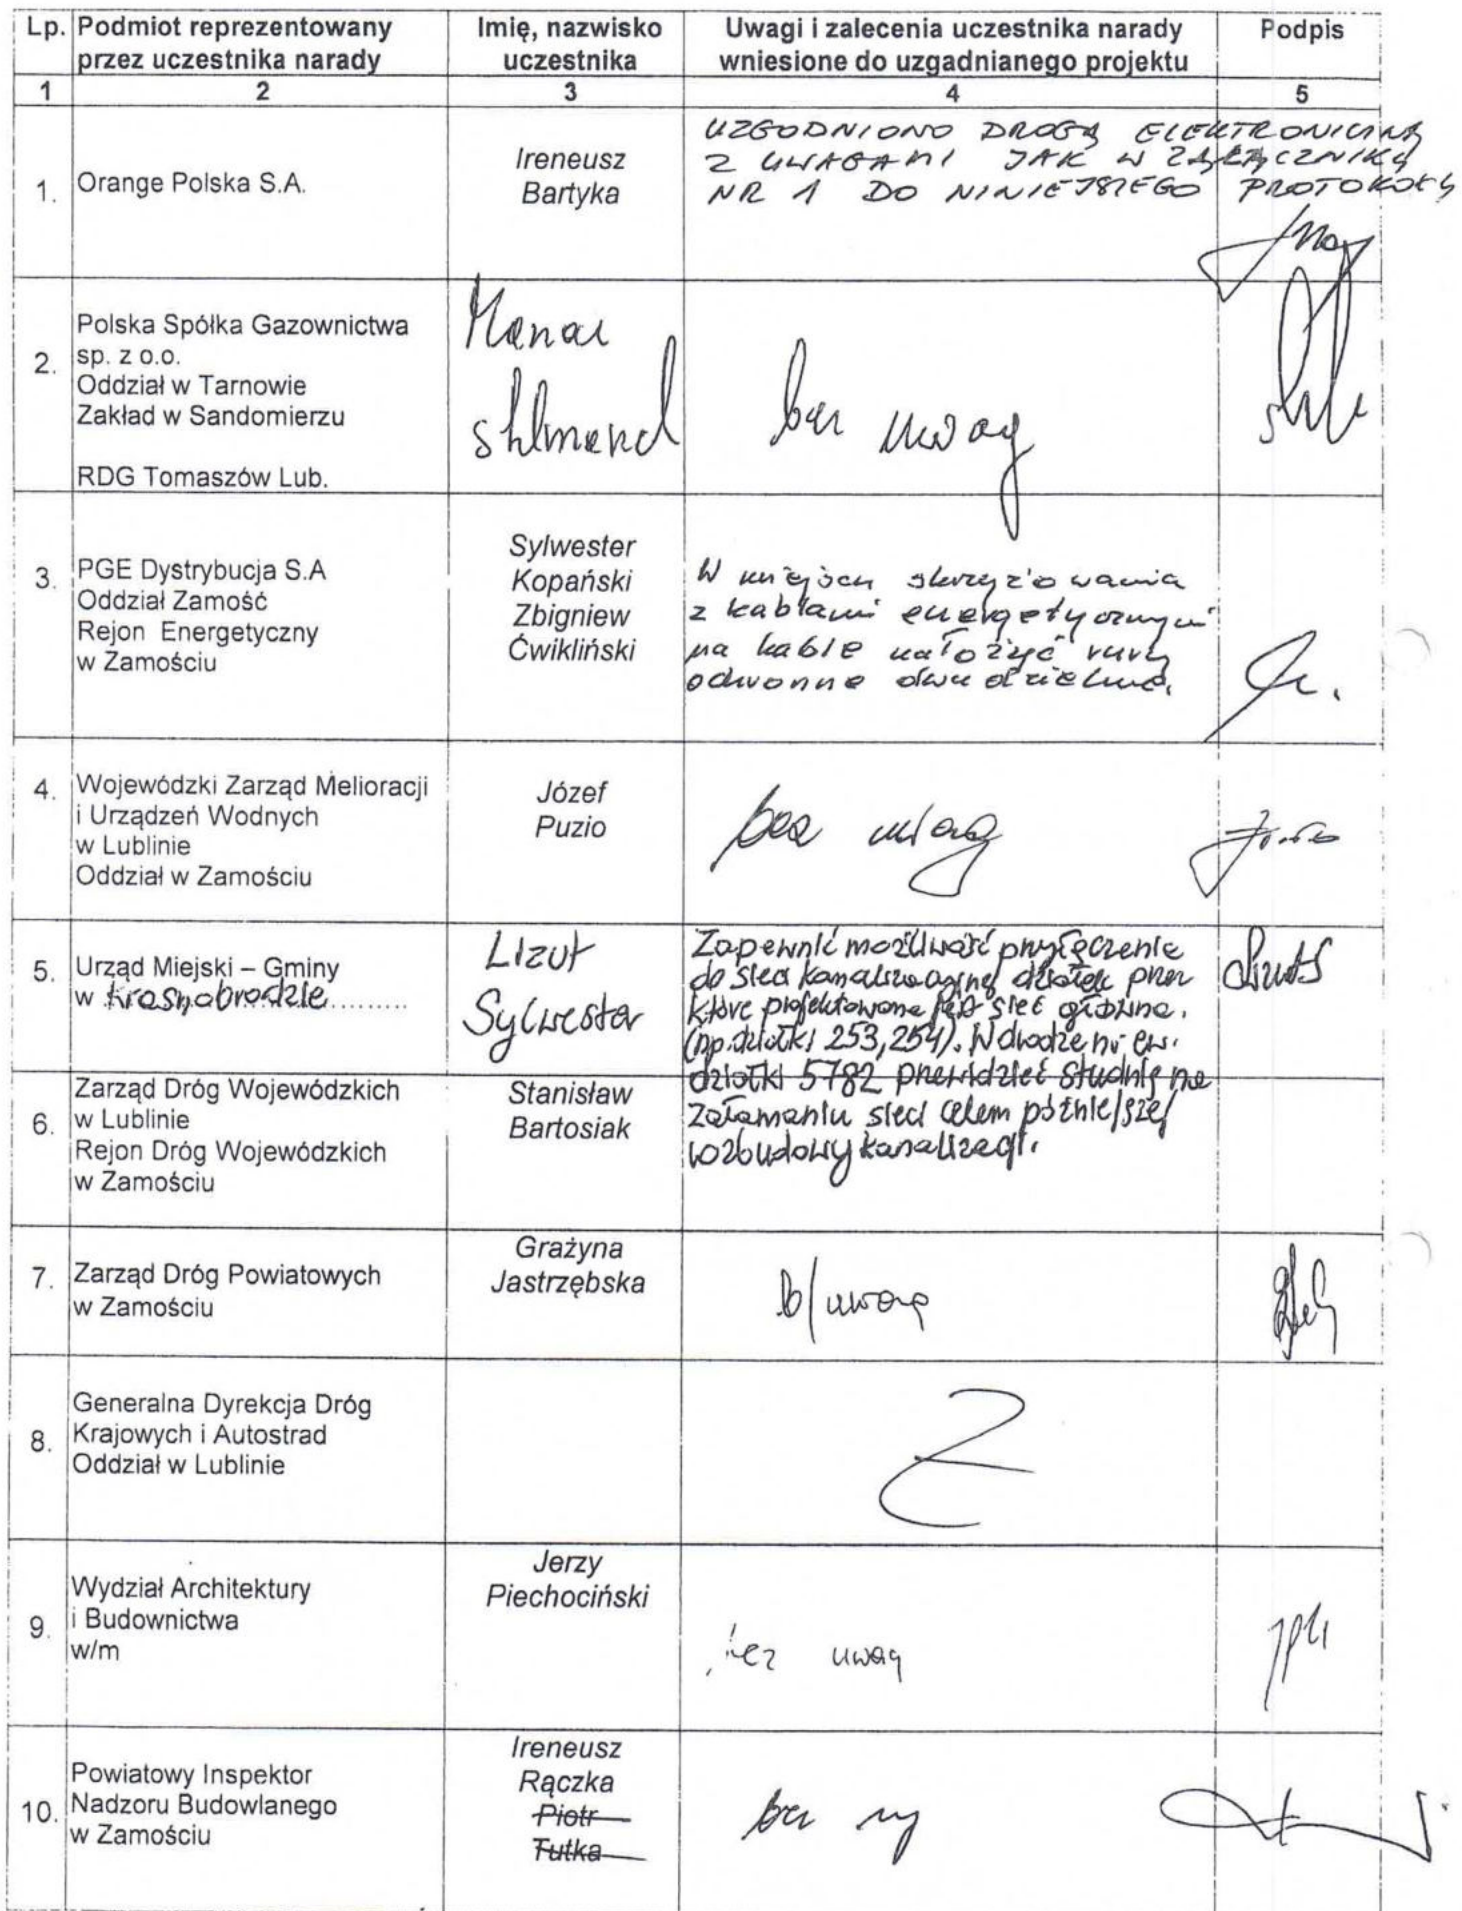 Lp. Podmiot reprezentowany przez uczestnika narady
Imię, nazwisko uczestnika
Uwagi i zalecenia uczestnika narady wniesione do uzgadnianego projektu
Podpis
1 2 3 4 5
1. Orange Polska S.A.
Ireneusz
Bartyka
UZGODNIONO DROGĄ ELEKTRONICZNĄ
Z UWAGAMI JAK W ZAŁĄCZNIKU
NR 1 DO NINIEJSZEGO PROTOKOŁU
2. Polska Spółka Gazownictwa
sp. z o.o.
Oddział w Tarnowie
Zakład w Sandomierzu
RDG Tomaszów Lub.
bez uwag
3. PGE Dystrybucja S.A
Oddział Zamość
Rejon Energetyczny
w Zamościu
Sylwester
Kopański
Zbigniew
Ćwikliński
W miejscu skrzyżowania
z kablami energetycznymi
na kable nałożyć rury
ochronne dwudzielne.
4. Wojewódzki Zarząd Melioracji
i Urządzeń Wodnych
w Lublinie
Oddział w Zamościu
Józef
Puzio
bez uwag
5. Urząd Miejski – Gminy
w Krasnobrodzie.........
Lizut
Sylwester
Zapewnić możliwość przyłączenie
do sieci kanalizacyjnej działek przez
które projektowana jest sieć główna.
(np. działki 253, 254). W drodze nr ew.
działki 5782 przewidzieć studnię na
załamaniu sieci celem późniejszej
rozbudowy kanalizacji.
6. Zarząd Dróg Wojewódzkich
w Lublinie
Rejon Dróg Wojewódzkich
w Zamościu
Stanisław
Bartosiak
7. Zarząd Dróg Powiatowych
w Zamościu
Grażyna
Jastrzębska
b/uwag
8. Generalna Dyrekcja Dróg
Krajowych i Autostrad
Oddział w Lublinie
9. Wydział Architektury
i Budownictwa
w/m
Jerzy
Piechociński
bez uwag
10. Powiatowy Inspektor
Nadzoru Budowlanego
w Zamościu
Ireneusz
Rączka
Piotr
Tutka
bez